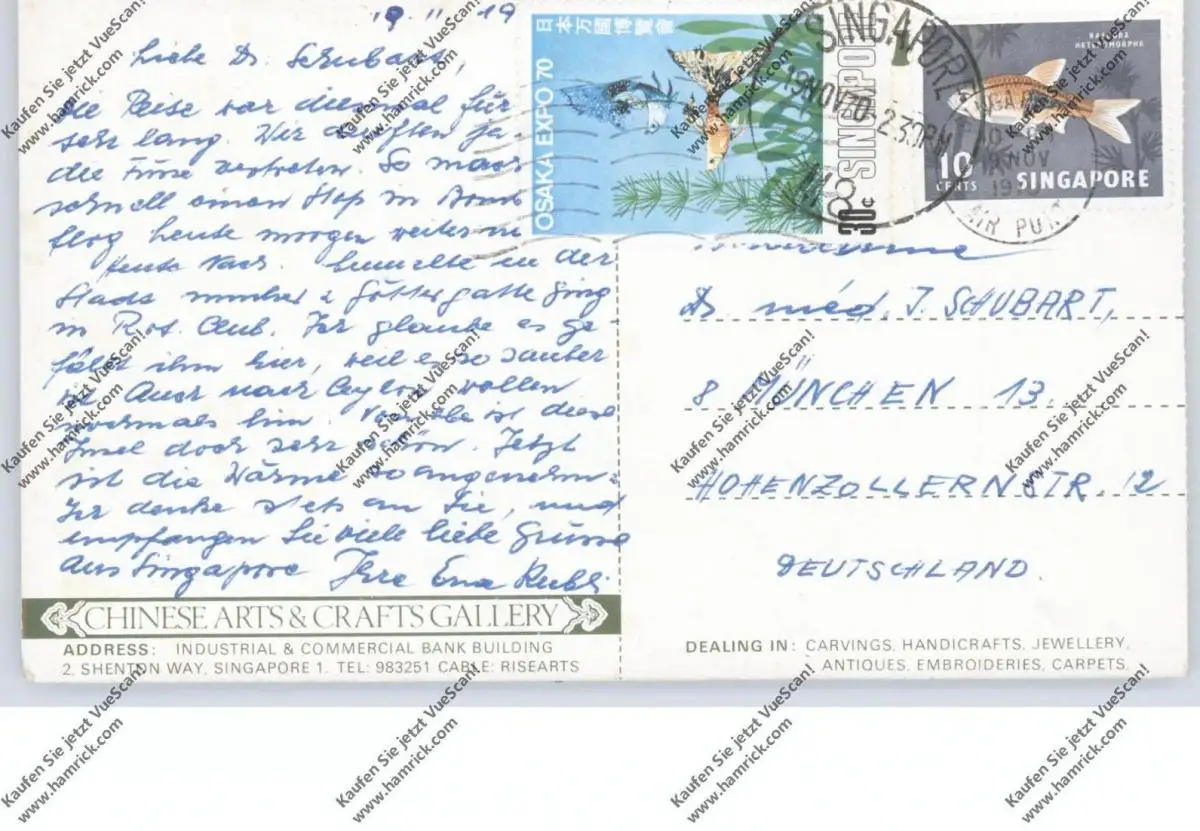 19. 11. 19
Liebe Dr. Schubart,
die Reise war diesmal für
sehr lang. Wir durften ja
die Füsse vertreten. So
schnell einen Stop in
flog heute morgen weiter
Heute Nach. bummelte in der
Stadt Göttergatte ging
in Rot. Club. Ich glaube es ge
fällt ihm hier, weil es so sauber
ist. Auch nach Ceylon wollen
nochmals hin. ist diese
Insel doch sehr schön. Jetzt
ist die Wärme so angenehm.
Ich denke stets an Sie, und
empfangen Sie viele liebe Grüsse
aus Singapore Ihre
CHINESE ARTS & CRAFTS GALLERY
ADDRESS: INDUSTRIAL & COMMERCIAL BANK BUILDING
2, SHENTON WAY, SINGAPORE 1. TEL: 983251 CABLE: RISEARTS
日本万国博覧会
OSAKA EXPO 70
30c SINGAPORE
SINGAPORE
19 NOV 70 2.30PM
RASBORA
HETEROMORPHA
10
CENTS
SINGAPORE
19 NOV
AIR PORT
Dr. méd. J. SCHUBART,
8 MÜNCHEN 13.
HOHENZOLLERNSTR. 12
DEUTSCHLAND.
DEALING IN: CARVINGS, HANDICRAFTS, JEWELLERY,
ANTIQUES, EMBROIDERIES, CARPETS.
Kaufen Sie jetzt VueScan!
www.hamrick.com